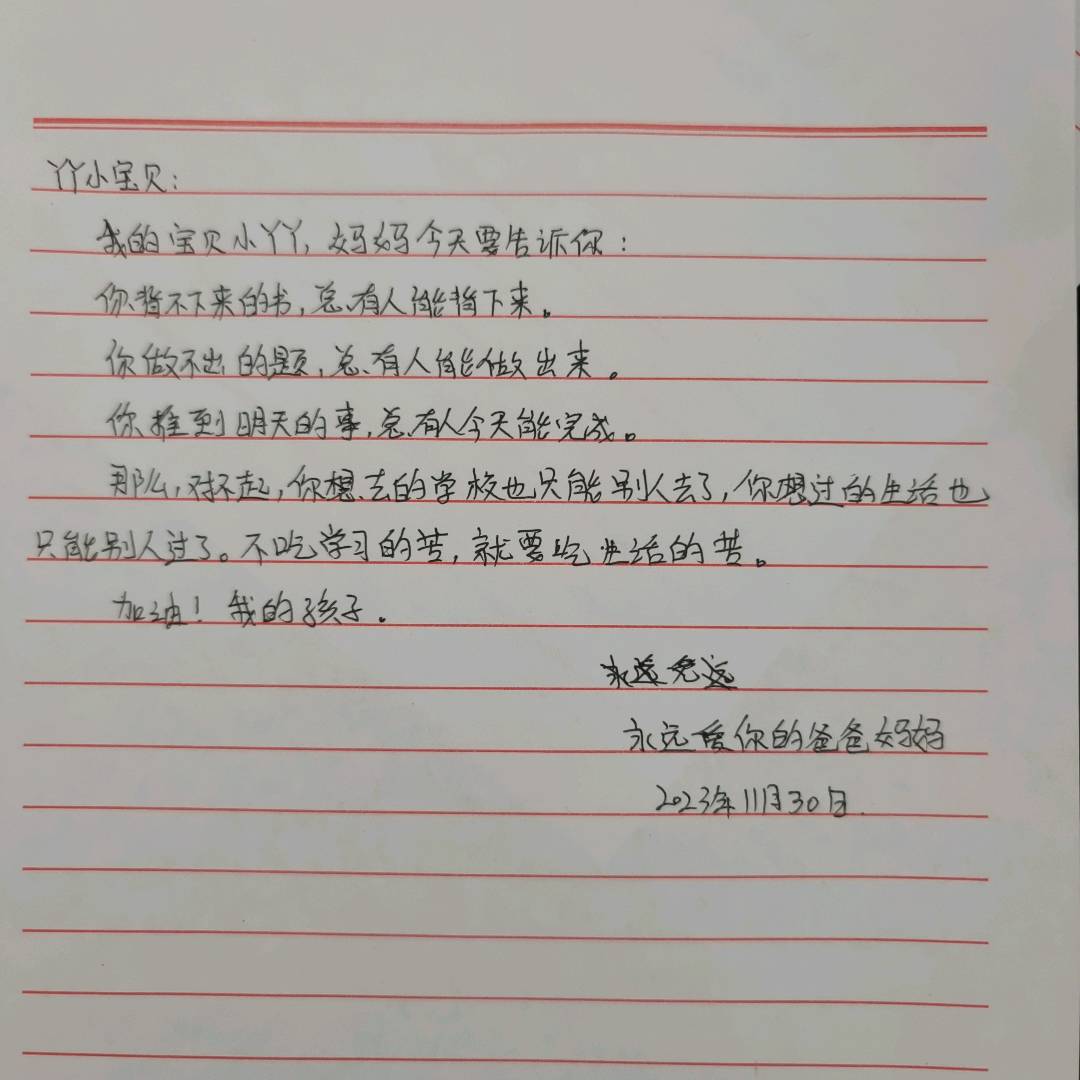 丫丫小宝贝：
我的宝贝小丫丫，妈妈今天要告诉你：
你背不下来的书，总有人能背下来。
你做不出的题，总有人能做出来。
你推到明天的事，总有人今天能完成。
那么，对不起，你想去的学校也只能别人去了，你想过的生活也
只能别人过了。不吃学习的苦，就要吃生活的苦。
加油！我的孩子。
永远爱你的爸爸妈妈
2023年11月30日.